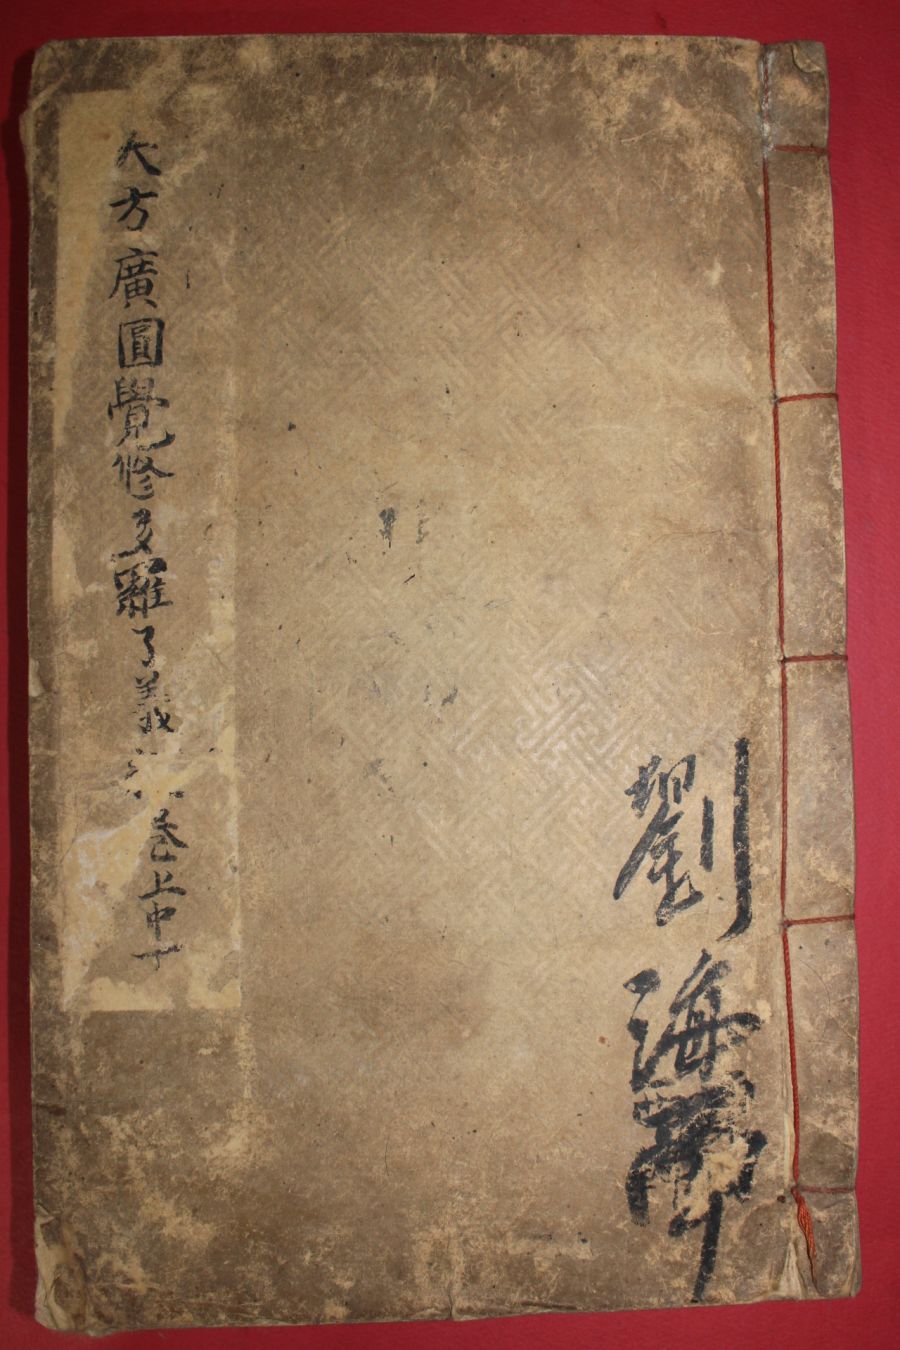 劉海
大方廣圓覺修多羅了義 卷上中下